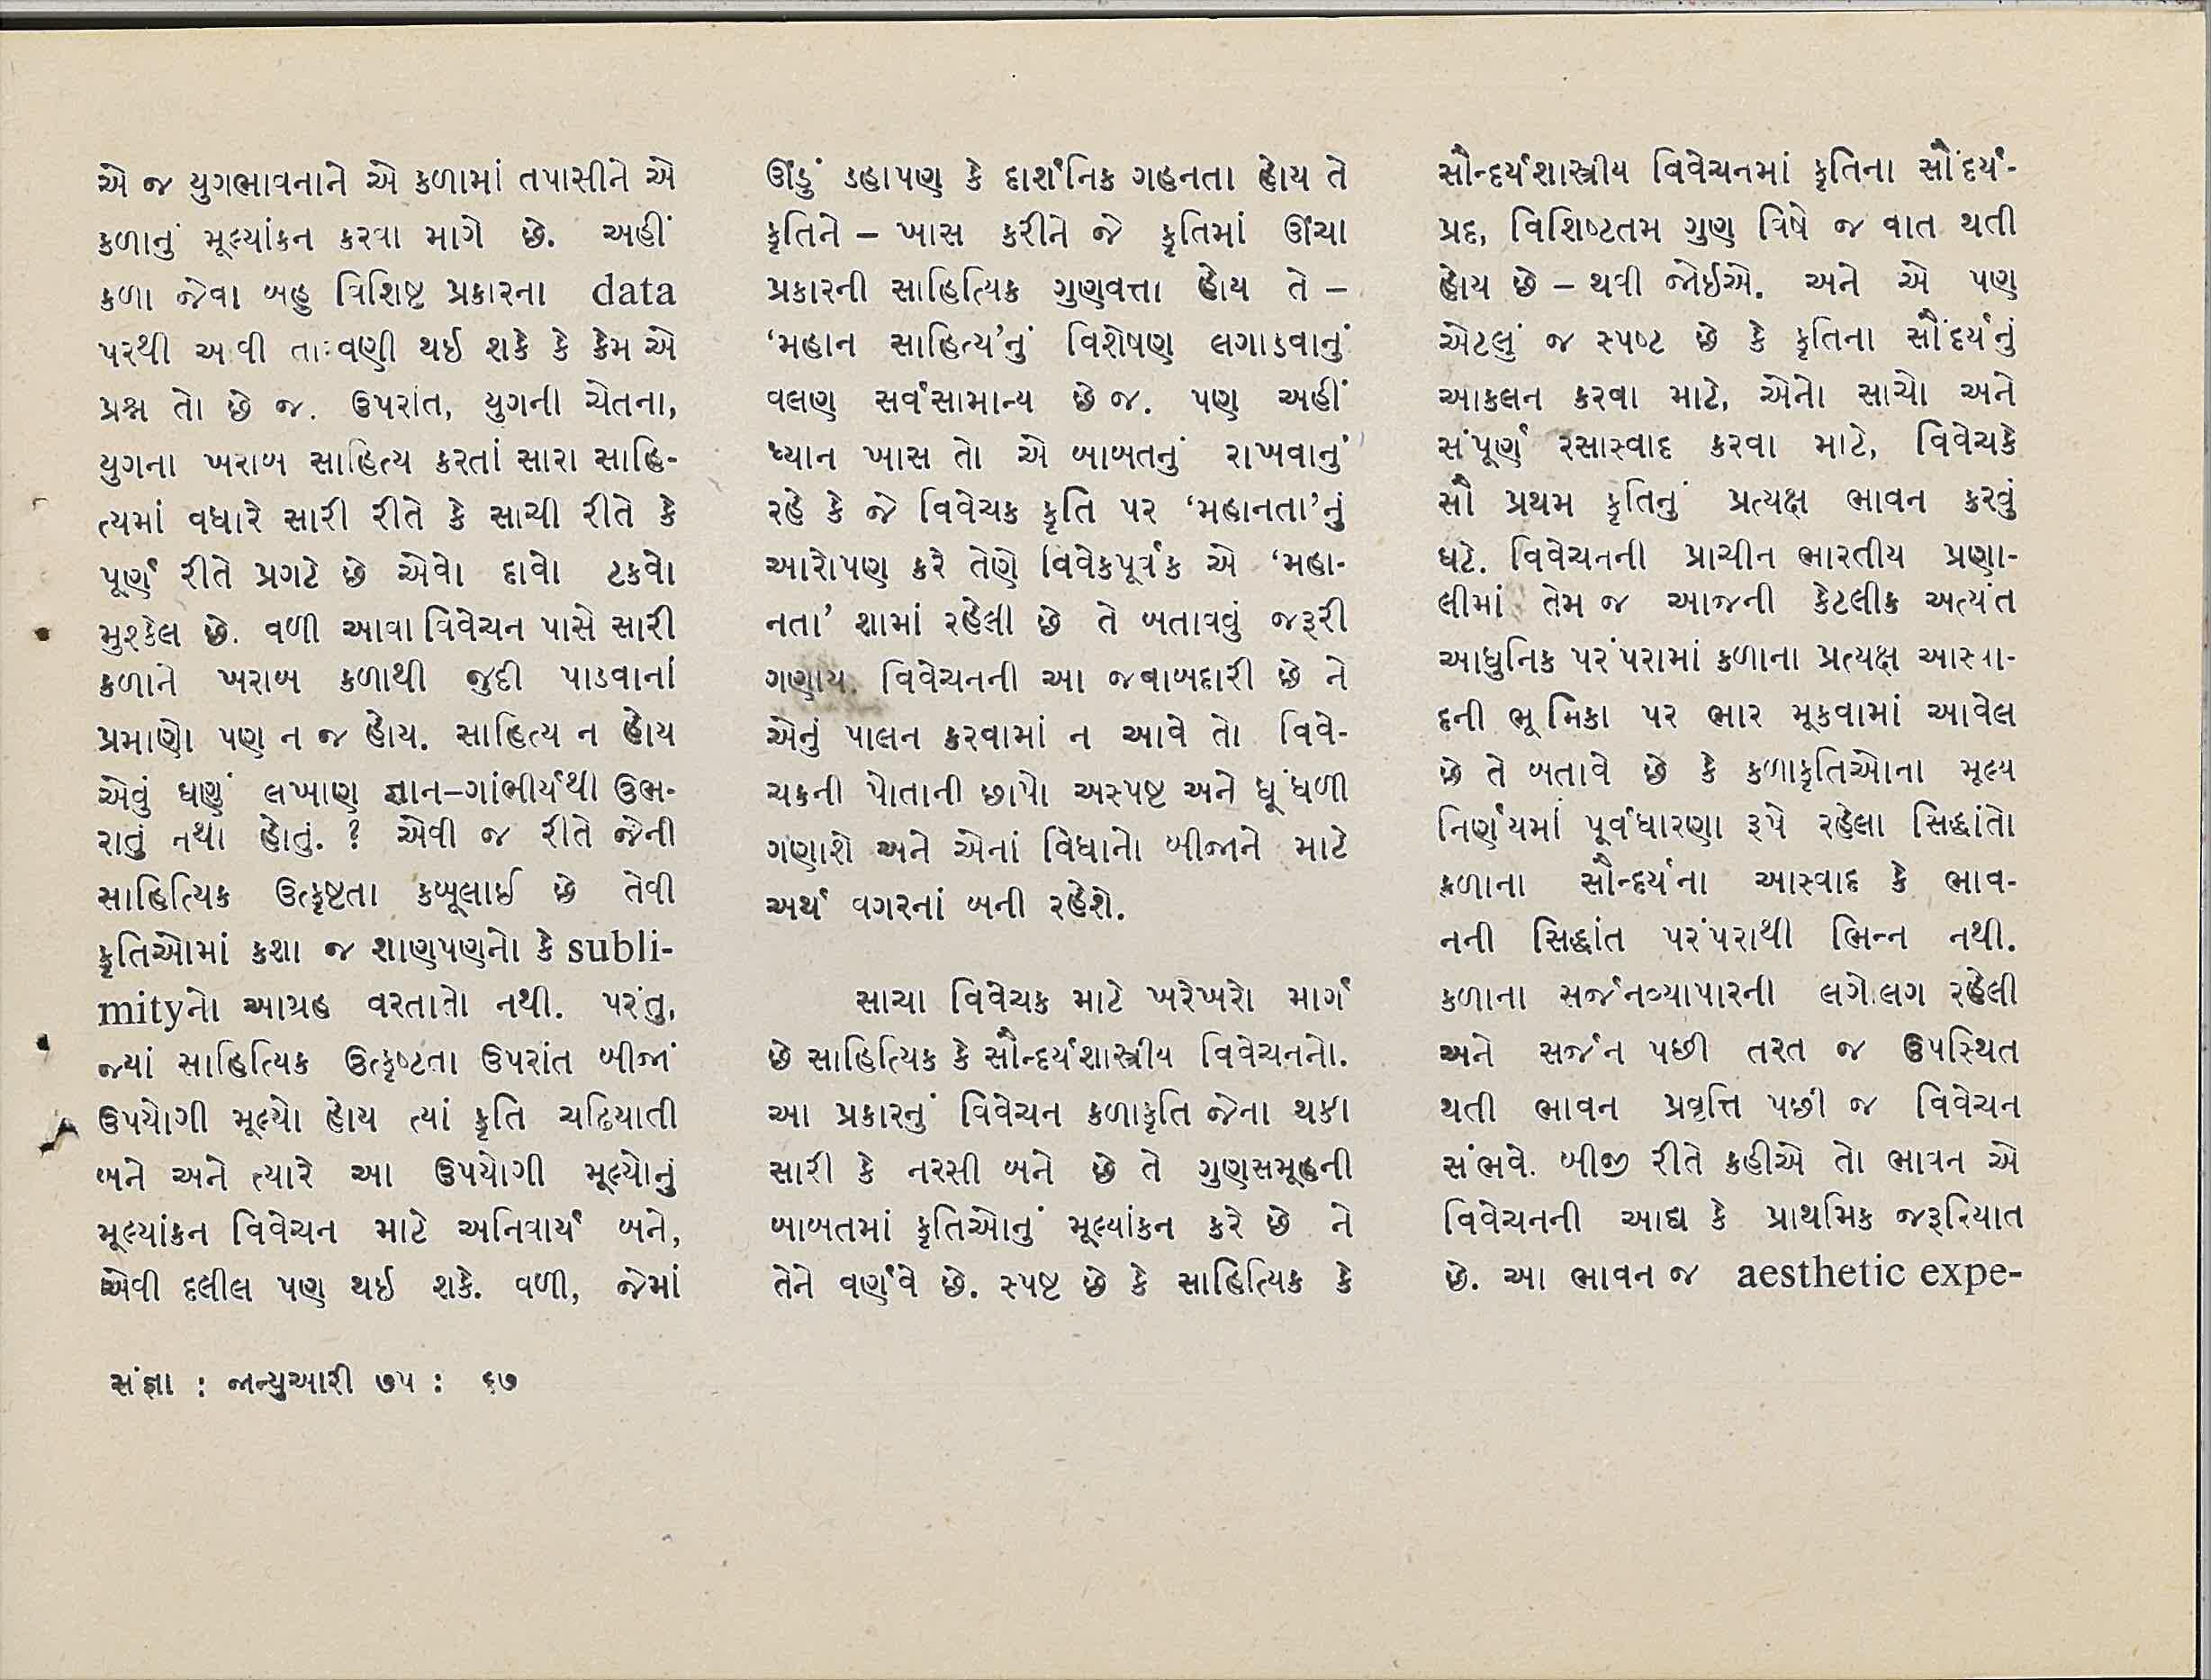 એ જ યુગભાવનાને એ કળામાં તપાસીને એ
કળાનું મૂલ્યાંકન કરવા માગે છે. અહીં
કળા જેવા બહુ વિશિષ્ટ પ્રકારના data
પરથી થઈ શકે કે કેમ એ
પ્રશ્ન તો છે જ. ઉપરાંત, યુગની ચેતના,
યુગના ખરાબ સાહિત્ય કરતાં સારા સાહિ-
ત્યમાં વધારે સારી રીતે કે સાચી રીતે કે
પૂર્ણ રીતે પ્રગટે છે એવો દાવો ટકવો
મુશ્કેલ છે. વળી આવા વિવેચન પાસે સારી
કળાને ખરાબ કળાથી જુદી પાડવાનાં
પ્રમાણો પણ ન જ હોય. સાહિત્ય ન હોય
એવું ઘણું લખાણ જ્ઞાન–ગાંભીર્યથી ઉભ-
રાતું નથી હોતું. ? એવી જ રીતે જેની
સાહિત્યિક ઉત્કૃષ્ટતા કબૂલાઈ છે તેવી
કૃતિઓમાં કશા જ શાણપણનો કે subli-
mityનો આગ્રહ વરતાતો નથી. પરંતુ,
જ્યાં સાહિત્યિક ઉત્કૃષ્ટતા ઉપરાંત બીજાં
ઉપયોગી મૂલ્યો હોય ત્યાં કૃતિ ચઢિયાતી
બને અને ત્યારે આ ઉપયોગી મૂલ્યોનું
મૂલ્યાંકન વિવેચન માટે અનિવાર્ય બને,
એવી દલીલ પણ થઈ શકે. વળી, જેમાં
સંજ્ઞા : જાન્યુઆરી ૭૫ : ૬૭
ઊંડું ડહાપણ કે દાર્શનિક ગહનતા હોય તે
કૃતિને – ખાસ કરીને જે કૃતિમાં ઊંચા
પ્રકારની સાહિત્યિક ગુણવત્તા હોય તે –
‘મહાન સાહિત્ય’નું વિશેષણ લગાડવાનું
વલણ સર્વસામાન્ય છે જ. પણ અહીં
ધ્યાન ખાસ તો એ બાબતનું રાખવાનું
રહે કે જે વિવેચક કૃતિ પર ‘મહાનતા’નું
આરોપણ કરે તેણે વિવેકપૂર્વક એ ‘મહા-
નતા’ શામાં રહેલી છે તે બતાવવું જરૂરી
ગણાય. વિવેચનની આ જવાબદારી છે ને
એનું પાલન કરવામાં ન આવે તો વિવે-
ચકની પોતાની છાપો અસ્પષ્ટ અને ધૂંધળી
ગણાશે અને એનાં વિધાનો બીજાને માટે
અર્થ વગરનાં બની રહેશે.
સાચા વિવેચક માટે ખરેખરો માર્ગ
છે સાહિત્યિક કે સૌન્દર્યશાસ્ત્રીય વિવેચનનો.
આ પ્રકારનું વિવેચન કળાકૃતિ જેના થકી
સારી કે નરસી બને છે તે ગુણસમૂહની
બાબતમાં કૃતિઓનું મૂલ્યાંકન કરે છે ને
તેને વર્ણવે છે. સ્પષ્ટ છે કે સાહિત્યિક કે
સૌન્દર્યશાસ્ત્રીય વિવેચનમાં કૃતિના સૌંદર્ય-
પ્રદ, વિશિષ્ટતમ ગુણ વિષે જ વાત થતી
હોય છે – થવી જોઈએ. અને એ પણ
એટલું જ સ્પષ્ટ છે કે કૃતિના સૌંદર્યનું
આકલન કરવા માટે, એનો સાચો અને
સંપૂર્ણ રસાસ્વાદ કરવા માટે, વિવેચકે
સૌ પ્રથમ કૃતિનું પ્રત્યક્ષ ભાવન કરવું
ઘટે. વિવેચનની પ્રાચીન ભારતીય પ્રણા-
લીમાં તેમ જ આજની કેટલીક અત્યંત
આધુનિક પરંપરામાં કળાના પ્રત્યક્ષ આસ્વા-
દની ભૂમિકા પર ભાર મૂકવામાં આવેલ
છે તે બતાવે છે કે કળાકૃતિઓના મૂલ્ય
નિર્ણયમાં પૂર્વધારણા રૂપે રહેલા સિદ્ધાંતો
કળાના સૌન્દર્યના આસ્વાદ કે ભાવ-
નની સિદ્ધાંત પરંપરાથી ભિન્ન નથી.
કળાના સર્જનવ્યાપારની લગોલગ રહેલી
અને સર્જન પછી તરત જ ઉપસ્થિત
થતી ભાવન પ્રવૃત્તિ પછી જ વિવેચન
સંભવે. બીજી રીતે કહીએ તો ભાવન એ
વિવેચનની આદ્ય કે પ્રાથમિક જરૂરિયાત
છે. આ ભાવન જ aesthetic expe-